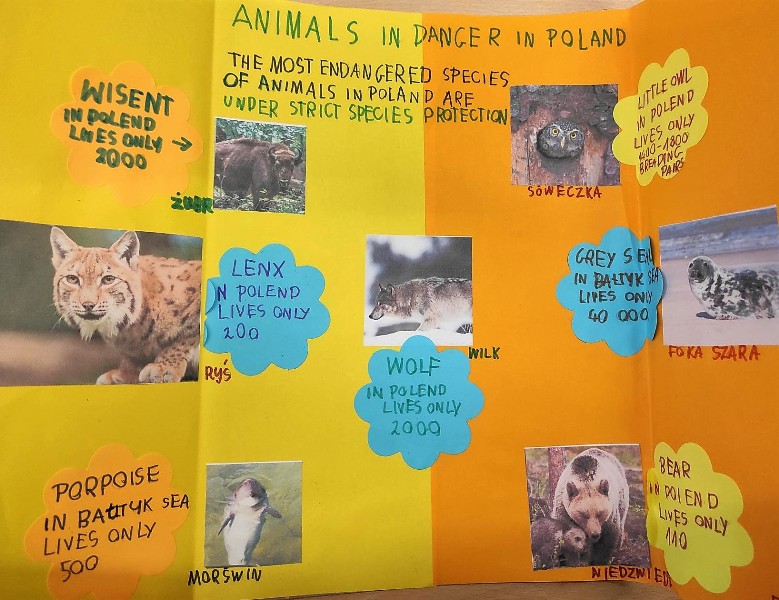 ANIMALS IN DANGER IN POLAND
THE MOST ENDANGERED SPECIES
OF ANIMALS IN POLAND ARE
UNDER STRICT SPECIES PROTECTION
WISENT
IN POLEND
LIVES ONLY →
2000
ŻUBR
SÓWECZKA
LITTLE OWL
IN POLEND
LIVES ONLY
1600-1800
BREADING
PAIRS
LENX
N POLEND
LIVES ONLY
200
RYŚ
WILK
WOLF
IN POLEND
LIVES ONLY
2000
GREY SEAL
IN BAŁTYK SEA
LIVES ONLY
40 000
FOKA SZARA
PORPOISE
IN BAŁTYK SEA
LIVES ONLY
500
MORŚWIN
BEAR
IN POLEND
LIVES ONLY
110
NIEDŹWIEDŹ